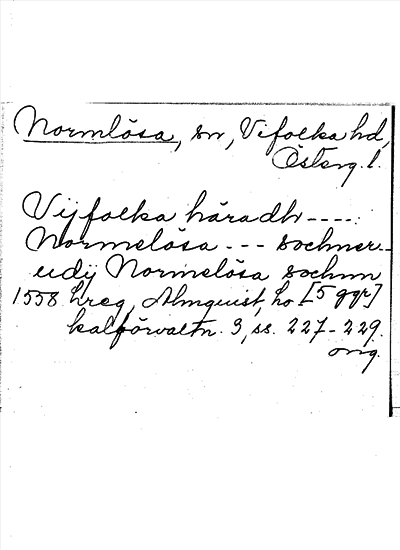 Normlösa, sn, Vifolka hd,
Österg. l.
Vijfolka häradh ----.
Normelösa --- sochner..
udij Normelösa sochnn
1558 hreg, Almquist, ho [5 ggr]
kalförvaltn. 3, ss. 227-229.
orig.